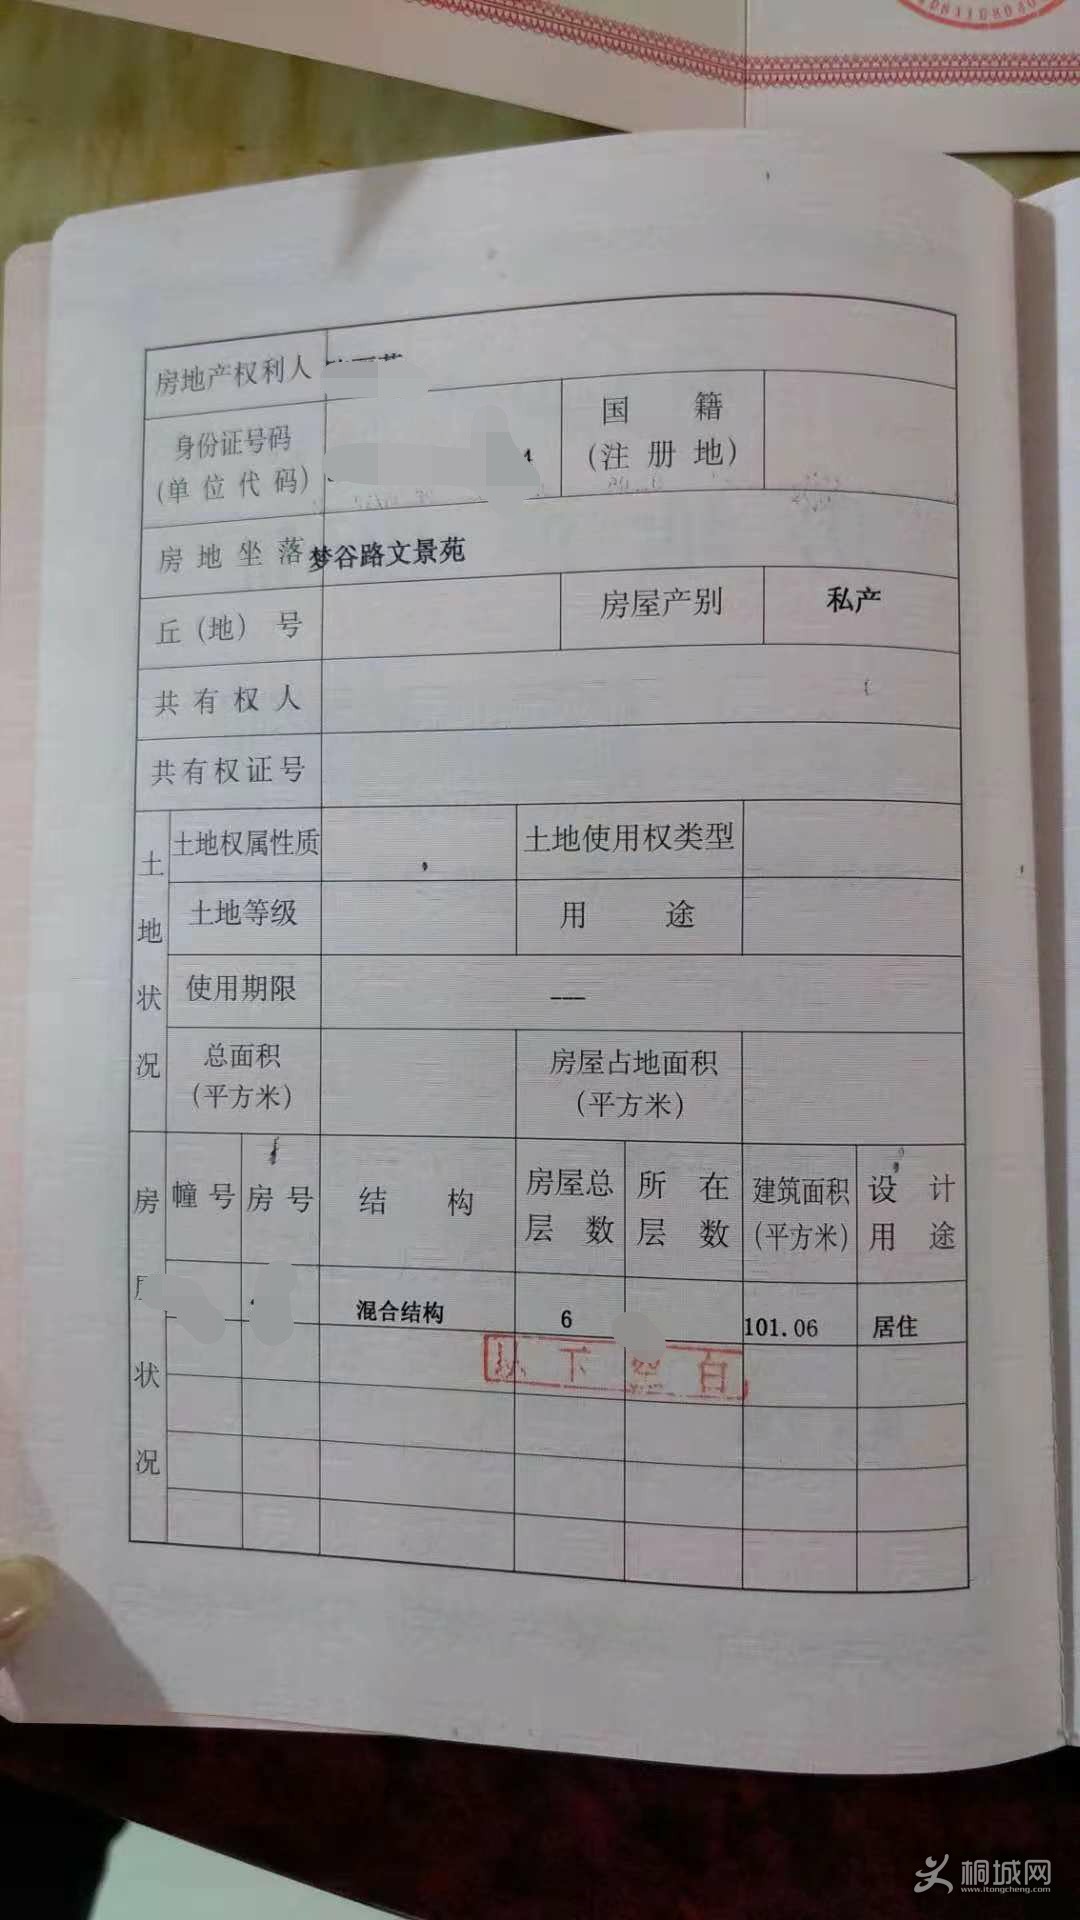 房地产权利人
身份证号码
(单位代码)
国籍
(注册地)
房地坐落 梦谷路文景苑
丘(地)号
房屋产别 私产
共有权人
共有权证号
土地状况
土地权属性质
土地使用权类型
土地等级
用途
使用期限 ---
总面积
(平方米)
房屋占地面积
(平方米)
房 状况
幢号
房号
结构
房屋总
层数
所在
层数
建筑面积
(平方米)
设计
用途
混合结构 6 101.06 居住
以下空白
桐城网
www.itongcheng.com